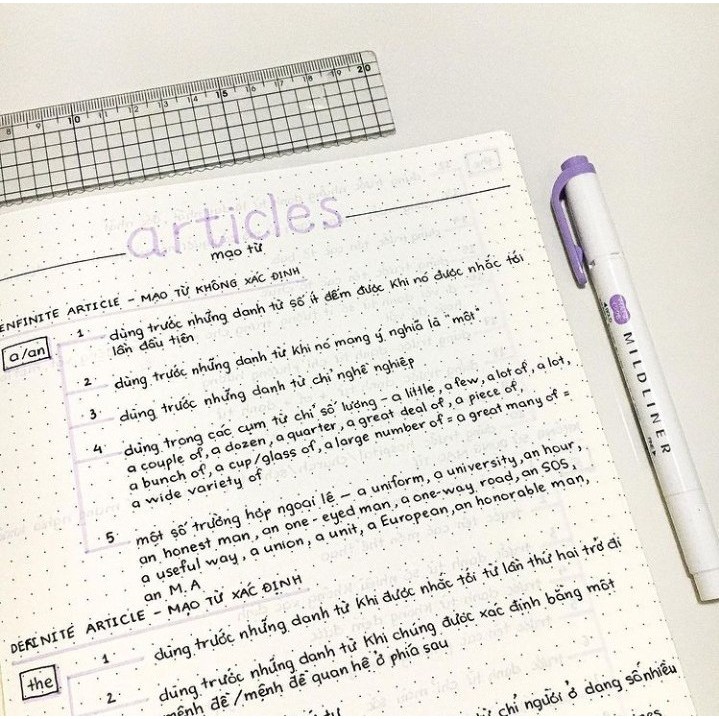 8 9 10 11 12 13 14 15 16 17 18 19 20
articles
mạo từ
ENFINITE ARTICLE - MẠO TỪ KHÔNG XÁC ĐỊNH
a/an
1 dùng trước những danh từ số ít đếm được khi nó được nhắc tới
lần đầu tiên
2 dùng trước những danh từ khi nó mang ý nghĩa là "một"
3 dùng trước những danh từ chỉ nghề nghiệp
4 dùng trong các cụm từ chỉ số lượng - a little, a few, a lot of, a lot,
a couple of, a dozen, a quarter, a great deal of, a piece of,
a bunch of, a cup/glass of, a large number of = a great many of =
a wide variety of
5 một số trường hợp ngoại lệ - a uniform, a university, an hour,
an honest man, an one-eyed man, a one-way road, an SOS,
a useful way, a union, a unit, a European, an honorable man,
an M.A
DEFINITE ARTICLE - MẠO TỪ XÁC ĐỊNH
the
1 dùng trước những danh từ khi được nhắc tới từ lần thứ hai trở đi
2 dùng trước những danh từ khi chúng được xác định bằng một
mệnh đề/mệnh đề quan hệ ở phía sau
từ chỉ người ở dạng số nhiều
MILDLINER